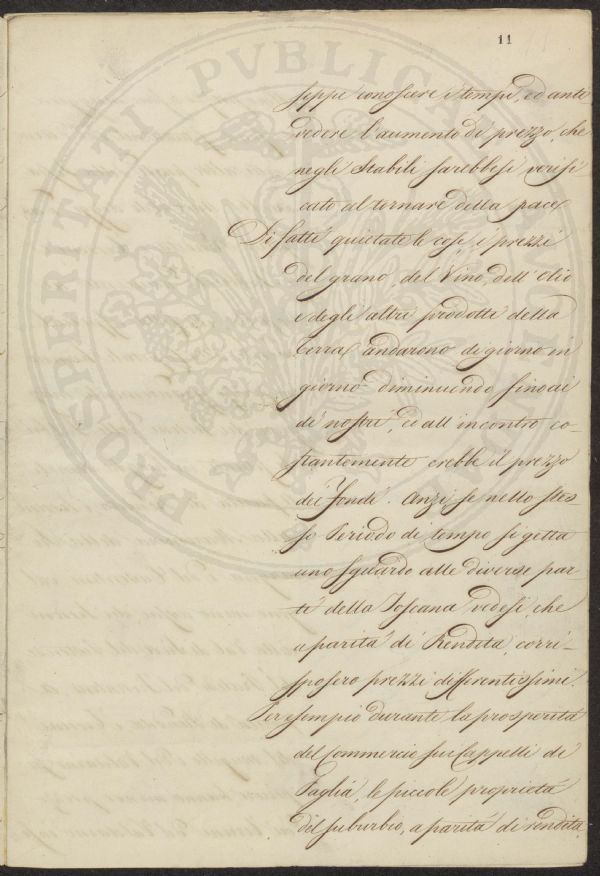 11
seppe conoscere i tempi, ed ante
vedere l'aumento di prezzo, che
negli stabili sarebbesi verifi
cato al tornare della pace.
Di fatti quietate le cose, i prezzi
del grano, del Vino, dell'Olio
e degli altri prodotti della
terra andarono di giorno in
giorno diminuendo fino ai
dì nostri, ed all'incontro co-
stantemente crebbe il prezzo
dei fondi. Anzi se nello stes-
so Periodo di tempo si getta
uno sguardo alle diverse par-
ti della Toscana vedesi, che
a parità di Rendita, corri-
sposero prezzi differentissimi.
Per esempio durante la prosperità
del Commercio sui Cappelli di
Paglia, le piccole proprietà
del suburbio, a parità di rendita,
PROSPERITATI PUBLICAE